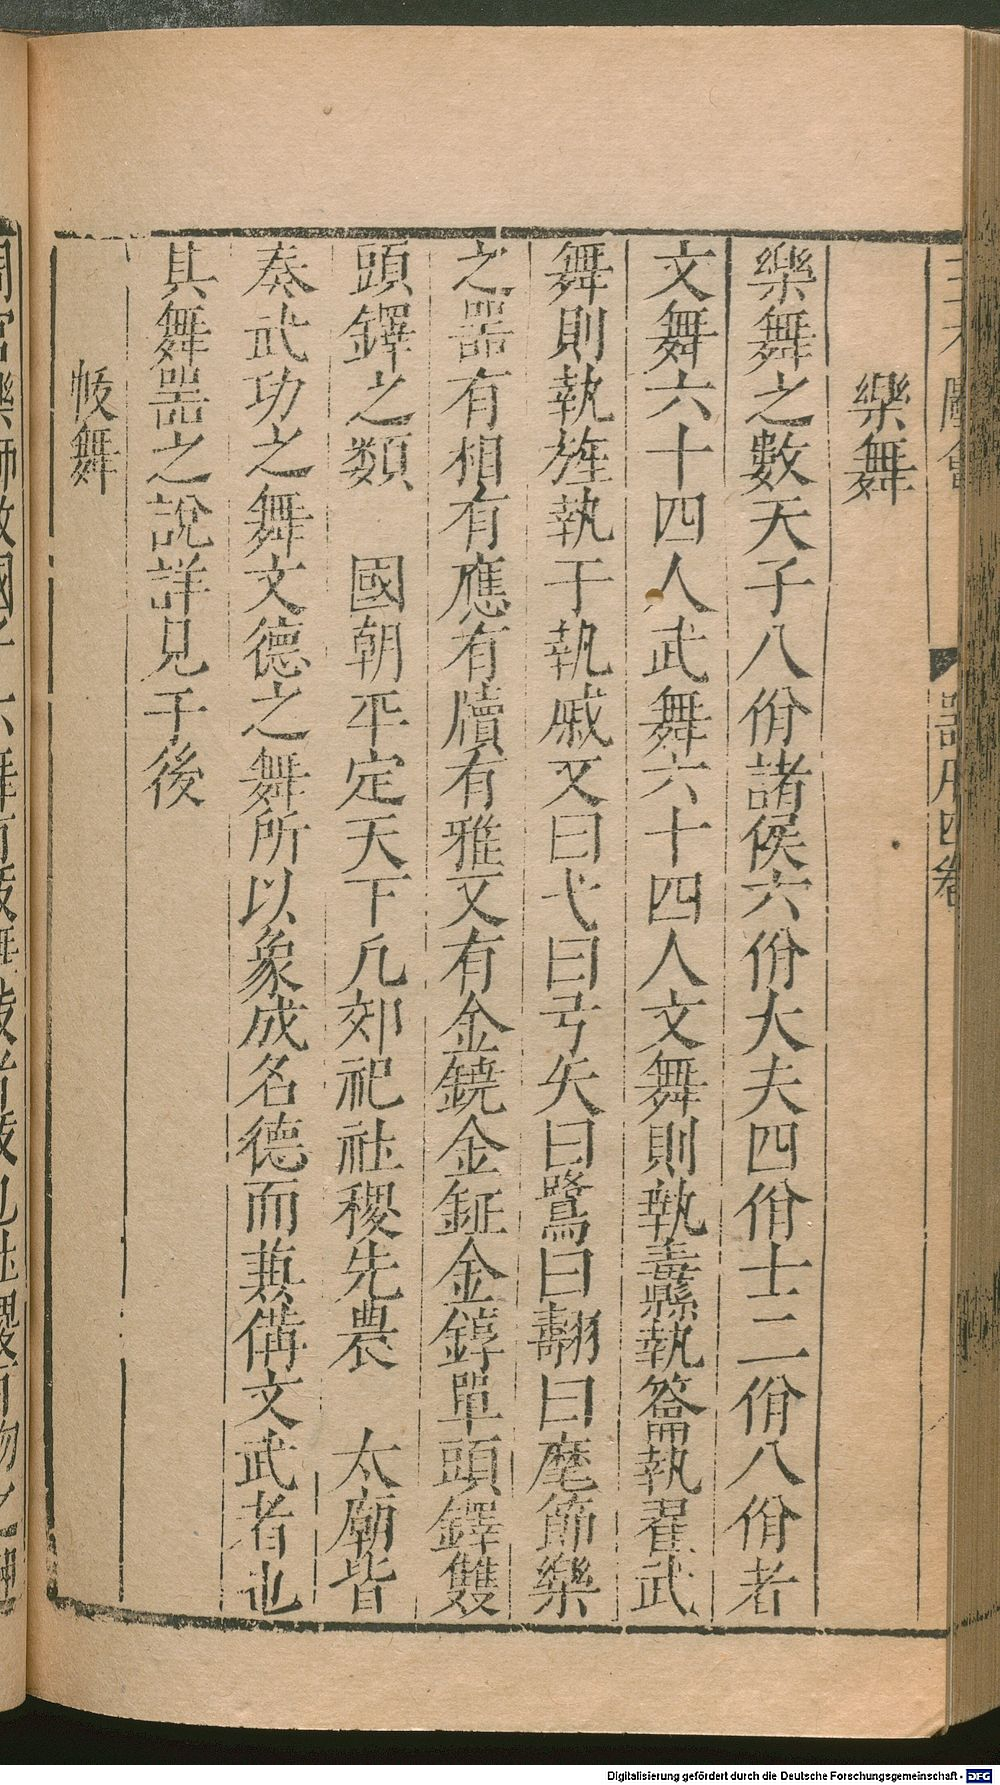 樂舞
樂舞之數天子八佾諸侯六佾大夫四佾士二佾八佾者
文舞六十四人武舞六十四人文舞則執纛執籥執翟武
舞則執旌執干執戚又曰弋曰弓矢曰鷺曰翿曰麾節樂
之器有相有應有牘有雅又有金鐃金鉦金錞單頭鐸雙
頭鐸之類　國朝平定天下凡郊祀社稷先農　太廟皆
奏武功之舞文德之舞所以象成名德而兼備文武者也
其舞器之說詳見于後
帗舞
Digitalisierung gefördert durch die Deutsche Forschungsgemeinschaft - DFG